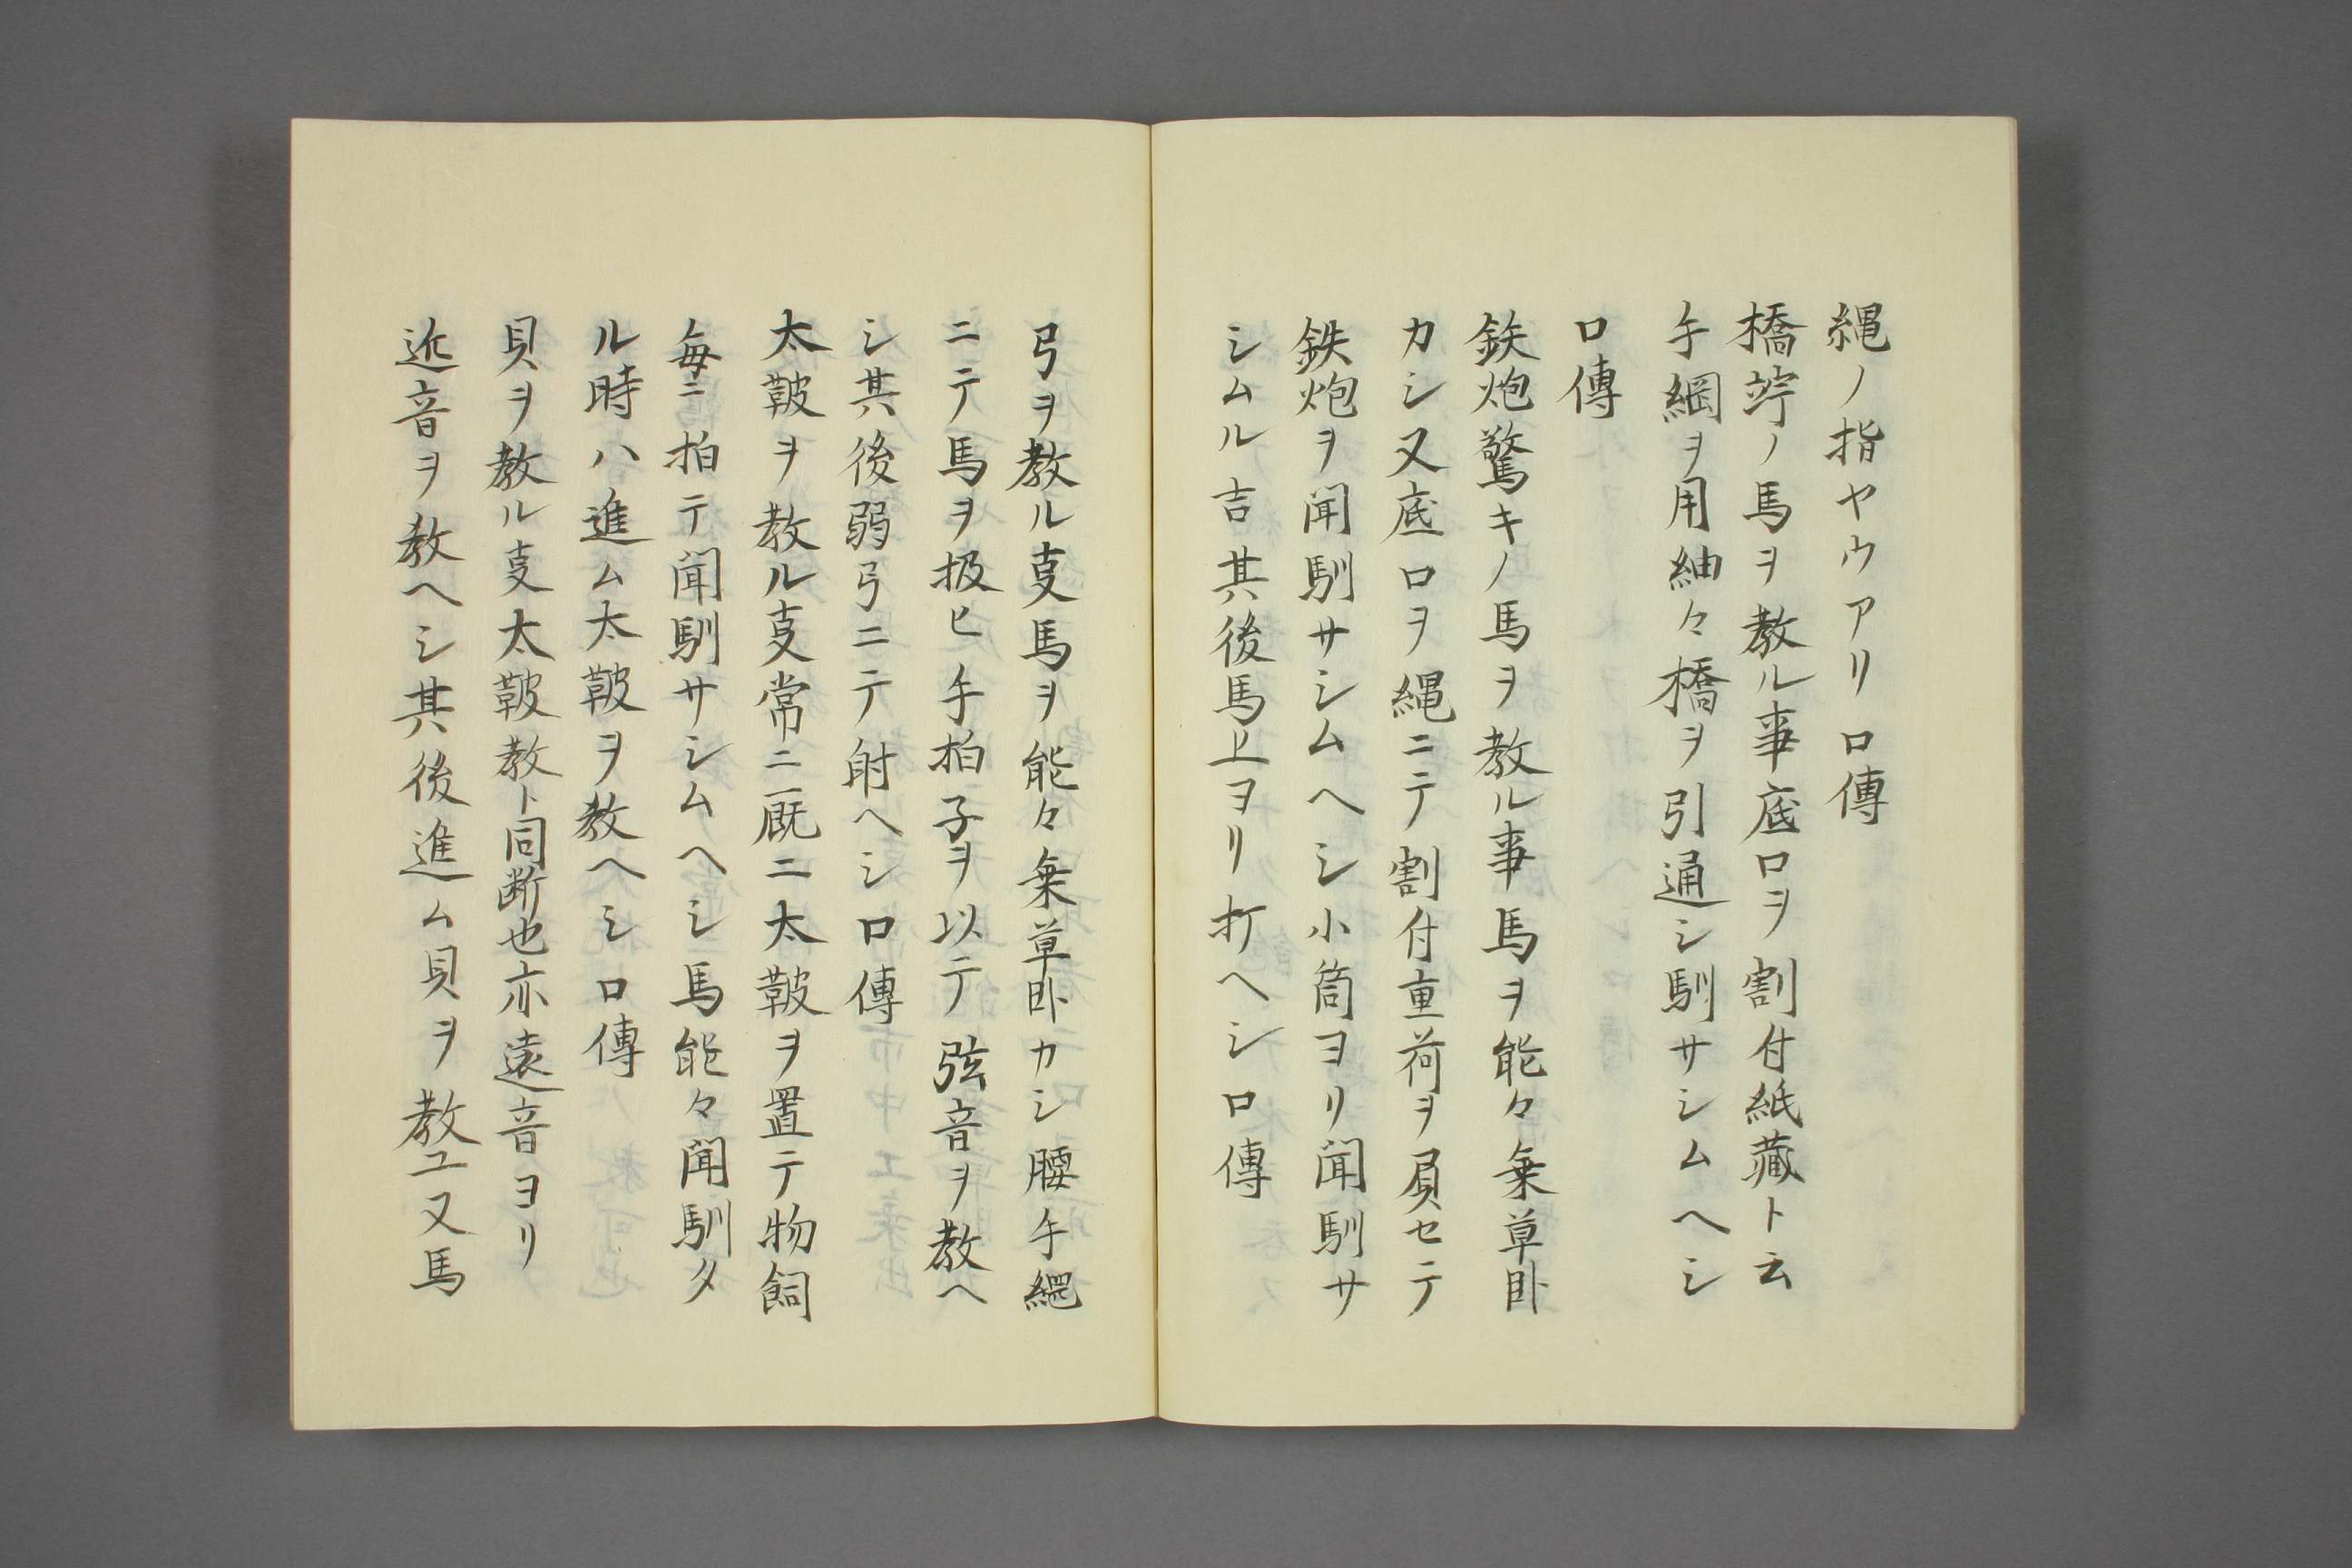 縄ノ指ヤウアリ口傳
橋竚ノ馬ヲ教ル事底口ヲ割付紙藏ト云
手綱ヲ用紬々橋ヲ引通シ馴サシムヘシ
口傳
鉄炮驚キノ馬ヲ教ル事馬ヲ能々乗草卧
カシ又底口ヲ縄ニテ割付重荷ヲ負セテ
鉄炮ヲ聞馴サシムヘシ小筒ヨリ聞馴サ
シムル吉其後馬上ヨリ打ヘシ口傳
弓ヲ教ル㕝馬ヲ能々乗草卧カシ腰手綱
ニテ馬ヲ扱ヒ手拍子ヲ以テ弦音ヲ教ヘ
シ其後弱弓ニテ射ヘシ口傳
太鞁ヲ教ル㕝常ニ厩ニ太鞁ヲ置テ物飼
毎ニ拍テ聞馴サシムヘシ馬能々聞馴タ
ル時ハ進ム太鞁ヲ教ヘシ口傳
貝ヲ教ル㕝太鞁教ト同断也亦遠音ヨリ
近音ヲ教ヘシ其後進ム貝ヲ教ユ又馬